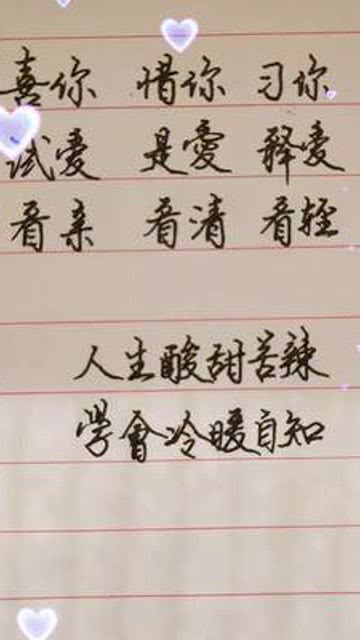 喜你 惜你 习你
试爱 是愛 释爱
看亲 看清 看轻
人生酸甜苦辣
學會冷暖自知